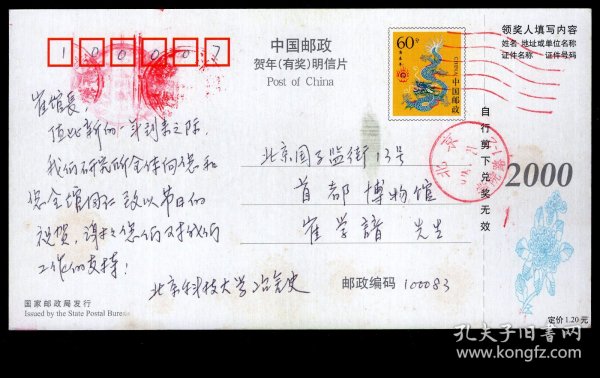 100007
中国邮政
贺年(有奖)明信片
Post of China
60分
CHINA
中国邮政
领奖人填写内容
姓名 地址或单位名称
证件名称 证件号码
自行剪下兑奖无效
2000
北京
崔馆长
值此新的一年到来之际,
我们研究所全体向您和
您全馆同仁致以节日的
祝贺,谢谢您们对我们
工作的支持!
北京国子监街13号
首都博物馆
崔学谙 先生
北京科技大学冶金史
邮政编码 100083
国家邮政局发行
Issued by the State Postal Bureau
定价1.20元
孔夫子旧书网
www.kongfz.com